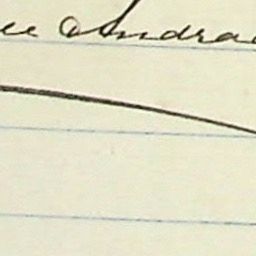 ee Andra